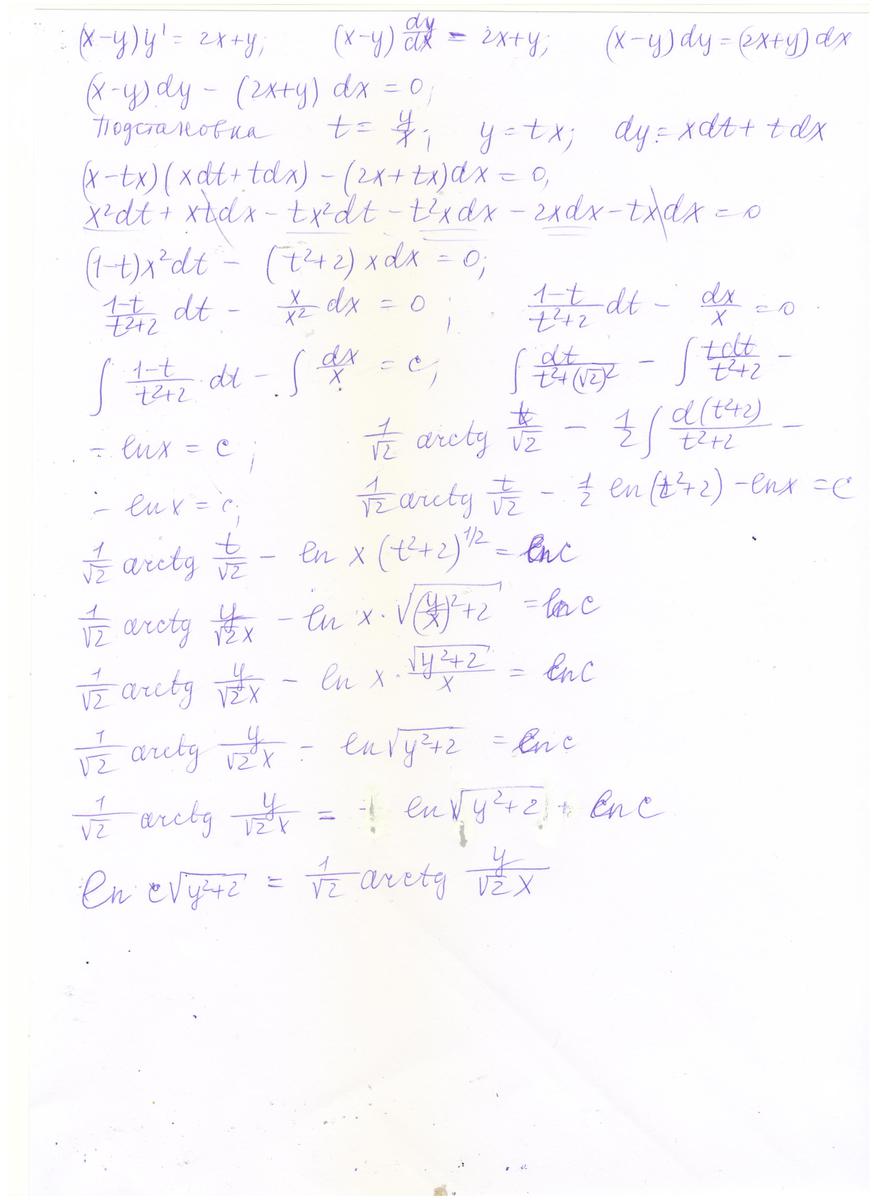 (x-y)y' = 2x+y; (x-y) dy/dx = 2x+y; (x-y)dy = (2x+y)dx
(x-y)dy - (2x+y) dx = 0;
Подстановка t = y/x; y = tx; dy = xdt + tdx
(x-tx)(xdt+tdx) - (2x+tx)dx = 0,
x²dt + xtdx - tx²dt - t²xdx - 2xdx - txdx = 0
(1-t)x²dt - (t²+2)xdx = 0;
(1-t)/(t²+2) dt - x/x² dx = 0; (1-t)/(t²+2) dt - dx/x = 0
∫ (1-t)/(t²+2) dt - ∫ dx/x = c; ∫ dt/(t²+(√2)²) - ∫ tdt/(t²+2) -
- ln x = c; 1/√2 arctg t/√2 - 1/2 ∫ d(t²+2)/(t²+2) -
- ln x = c; 1/√2 arctg t/√2 - 1/2 ln(t²+2) - ln x = c
1/√2 arctg t/√2 - ln x (t²+2)^1/2 = ln c
1/√2 arctg y/√2x - ln x · √((y/x)²+2) = ln c
1/√2 arctg y/√2x - ln x · √(y²+2)/x = ln c
1/√2 arctg y/√2x - ln √(y²+2) = ln c
1/√2 arctg y/√2x = ln √(y²+2) + ln c
ln c√(y²+2) = 1/√2 arctg y/√2x